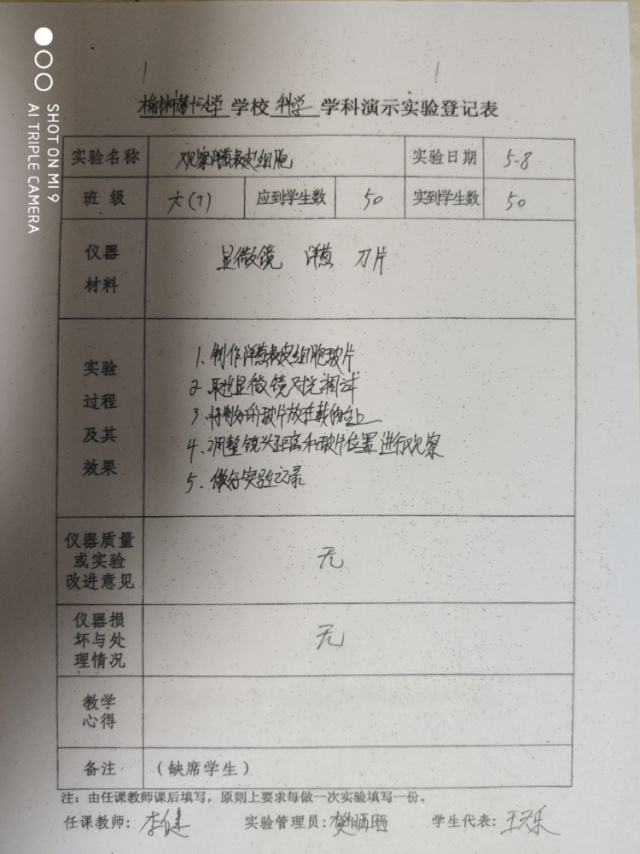 SHOT ON MI 9
AI TRIPLE CAMERA
榆林第十二小学 学校 科学 学科演示实验登记表
实验名称 观察洋葱表皮细胞 实验日期 5-8
班 级 六(1) 应到学生数 50 实到学生数 50
仪器
材料
显微镜 洋葱 刀片
实验
过程
及其
效果
1. 制作洋葱表皮细胞玻片
2. 取出显微镜对光调试
3. 将制好的玻片放在载物台上
4. 调整镜头距离和玻片位置进行观察
5. 做好实验记录
仪器质量
或实验
改进意见
无
仪器损
坏与处
理情况
无
教学
心得
备注 (缺席学生)
注：由任课教师课后填写，原则上要求每做一次实验填写一份。
任课教师：李健 实验管理员：樊晒晒 学生代表：